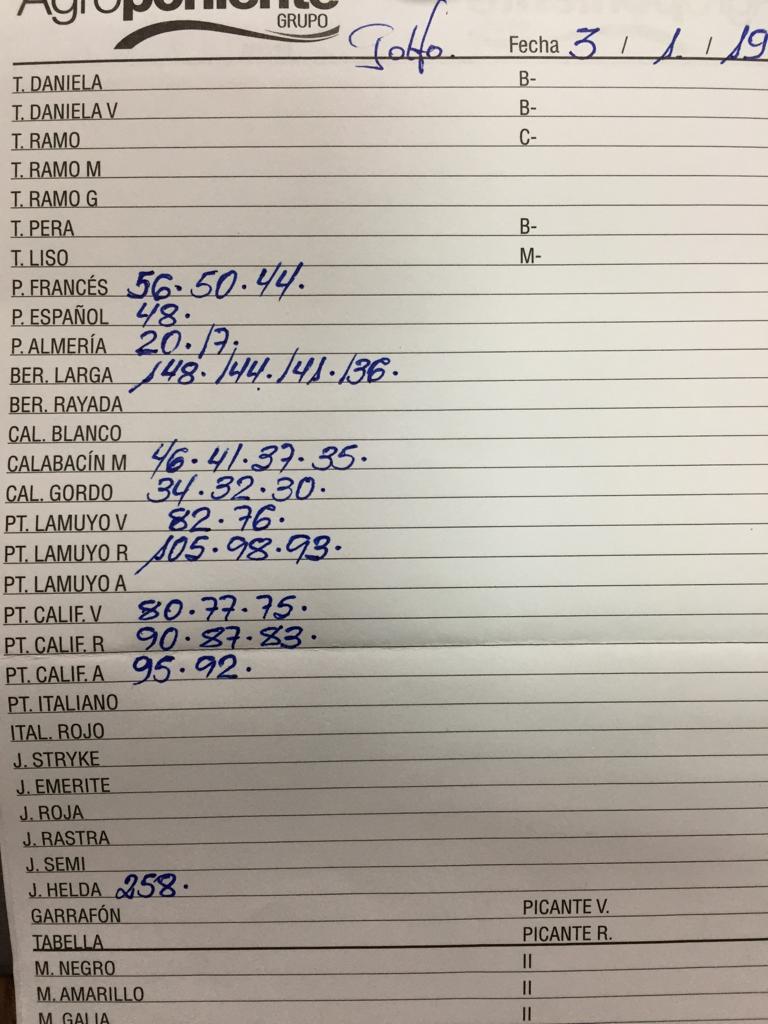 Agroponiente
GRUPO
Golfo. Fecha 3 / 1. / 19
T. DANIELA B-
T. DANIELA V B-
T. RAMO C-
T. RAMO M
T. RAMO G
T. PERA B-
T. LISO M-
P. FRANCÉS 56. 50. 44.
P. ESPAÑOL 48.
P. ALMERÍA 20. 17.
BER. LARGA 148. 144. 141. 136.
BER. RAYADA
CAL. BLANCO
CALABACÍN M 46. 41. 37. 35.
CAL. GORDO 34. 32. 30.
PT. LAMUYO V 82. 76.
PT. LAMUYO R 105. 98. 93.
PT. LAMUYO A
PT. CALIF. V 80. 77. 75.
PT. CALIF. R 90. 87. 83.
PT. CALIF. A 95. 92.
PT. ITALIANO
ITAL. ROJO
J. STRYKE
J. EMERITE
J. ROJA
J. RASTRA
J. SEMI
J. HELDA 258.
GARRAFÓN PICANTE V.
TABELLA PICANTE R.
M. NEGRO II
M. AMARILLO II
M. GALIA II